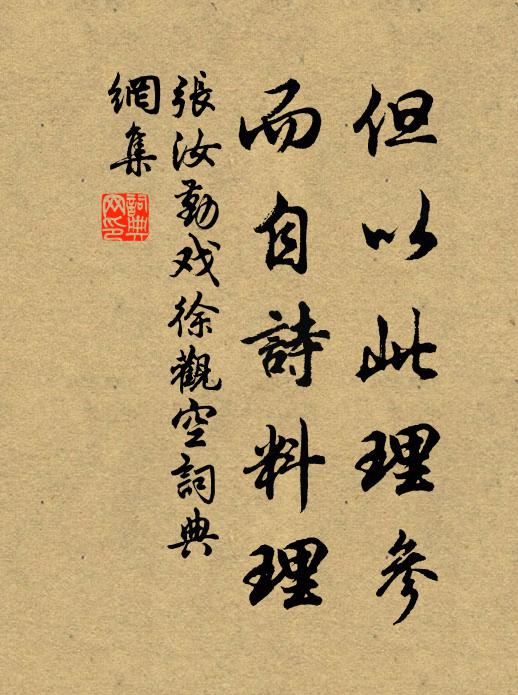 但以此理參
而自詩料理
張汝勤戏徐觀空詞典
網集
詞典
网印